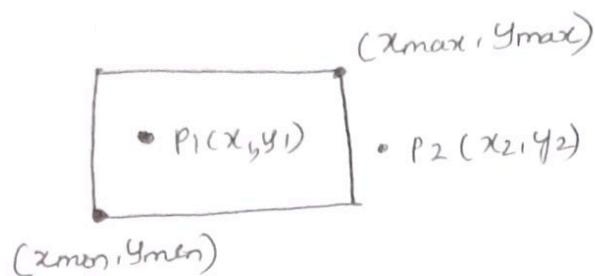 (xmax, ymax)
P1(x1,y1)
P2 (x2, y2)
(xmin, ymin)